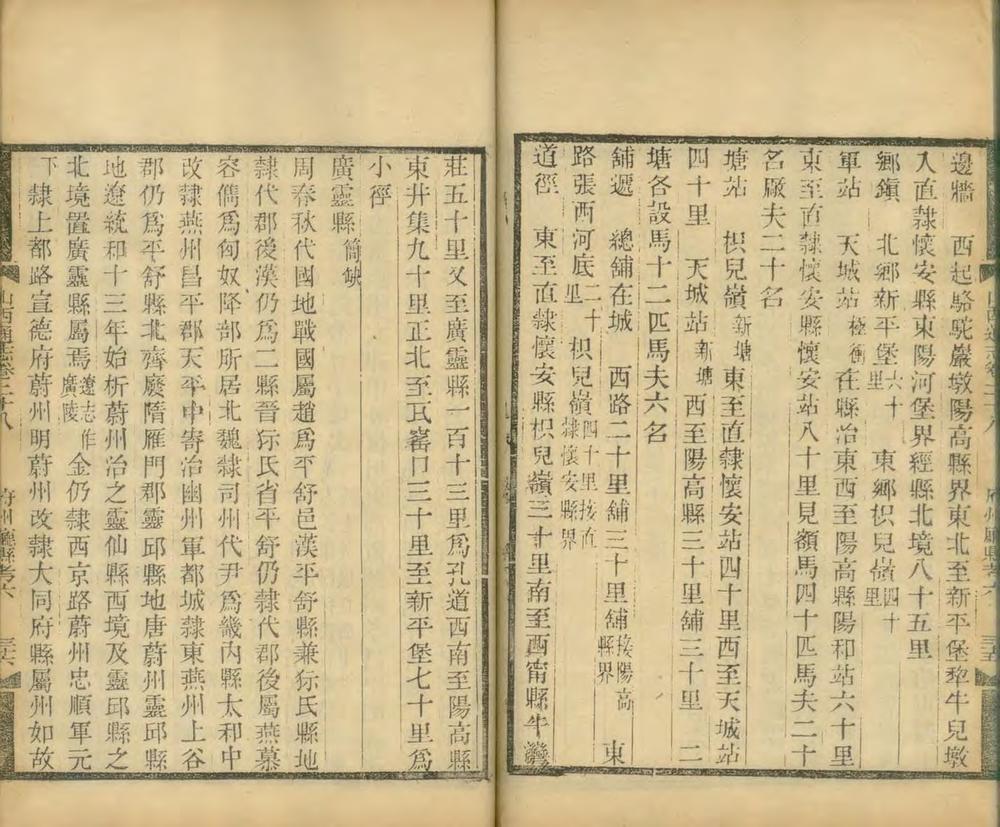 邊牆　西起駱駝巖墩陽高縣界東北至新平堡犂牛兒墩
入直隸懷安縣東陽河堡界經縣北境八十五里
鄉鎮　北鄉新平堡六十里　東鄉枳兒嶺四十里
軍站　天城站極衝在縣治東西至陽高縣陽和站六十里
東至直隸懷安縣懷安站八十里見額馬四十匹馬夫二十
名厰夫二十名
塘站　枳兒嶺新塘東至直隸懷安站四十里西至天城站
四十里　天城站新塘　西至陽高縣三十里鋪三十里　二
塘各設馬十二匹馬夫六名
鋪遞　總鋪在城　西路二十里鋪三十里鋪接陽高縣界　東
路張西河底二十里枳兒嶺四十里接直隸懷安縣界
道徑　東至直隸懷安縣枳兒嶺三十里南至西甯縣牛
山西通志卷二十八　府州廳縣考六　三五
莊五十里又至廣靈縣一百十三里爲孔道西南至陽高縣
東井集九十里正北至瓦窰口三十里至新平堡七十里爲
小徑
廣靈縣簡缺
周春秋代國地戰國屬趙爲平舒邑漢平舒縣兼狋氏縣地
隸代郡後漢仍爲二縣晉狋氏省平舒仍隸代郡後屬燕慕
容儁爲匈奴降部所居北魏隸司州代尹爲畿内縣太和中
改隸燕州昌平郡天平中寄治幽州軍都城隸東燕州上谷
郡仍爲平舒縣北齊廢隋雁門郡靈邱縣地唐蔚州靈邱縣
地遼統和十三年始析蔚州治之靈仙縣西境及靈邱縣之
北境置廣靈縣屬焉遼志作廣陵金仍隸西京路蔚州忠順軍元
下隸上都路宣德府蔚州明蔚州改隸大同府縣屬州如故
山西通志卷二十八　府州廳縣考六　三六